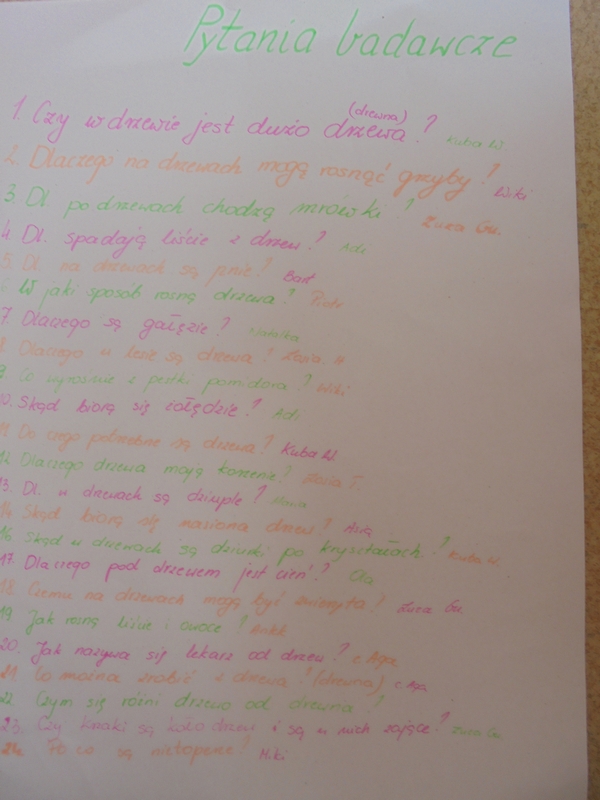 Pytania badawcze
(drewna)
1. Czy w drzewie jest dużo drzewa? Kuba W.
2. Dlaczego na drzewach mogą rosnąć grzyby? Wiki
3. Dl po drzewach chodzą mrówki? Zuza Gu.
4. Dl. spadają liście z drzew? Adi
5. Dl. na drzewach są pnie? Bart
6. W jaki sposób rosną drzewa? Piotr
7. Dlaczego są gałęzie? Natalka
8. Dlaczego w lesie są drzewa? Zosia
9. Co wyrośnie z pestki pomidora? Wiki
10. Skąd biorą się żołędzie? Adi
11. Do czego potrzebne są drzewa? Kuba W.
12. Dlaczego drzewa mają korzenie? Zosia T.
13. Dl. w drzewach są dziuple?
14. Skąd biorą się nasiona drzew? Asia
16. Skąd w drzewach są dziurki po kryształach? Kuba W.
17. Dlaczego pod drzewem jest cień? Ola
18. Czemu na drzewach mogą być zwierzęta? Zuza Gu.
19. Jak rosną liście i owoce?
20. Jak nazywa się lekarz od drzew? c. Aga
21. Co można zrobić z drzewa? (drewna) c. Aga
22. Czym się różni drzewo od drewna?
23. Czy krzaki są koło drzew i są w nich zające? Zuza Gu.
24. Po co są nietoperze? Miki